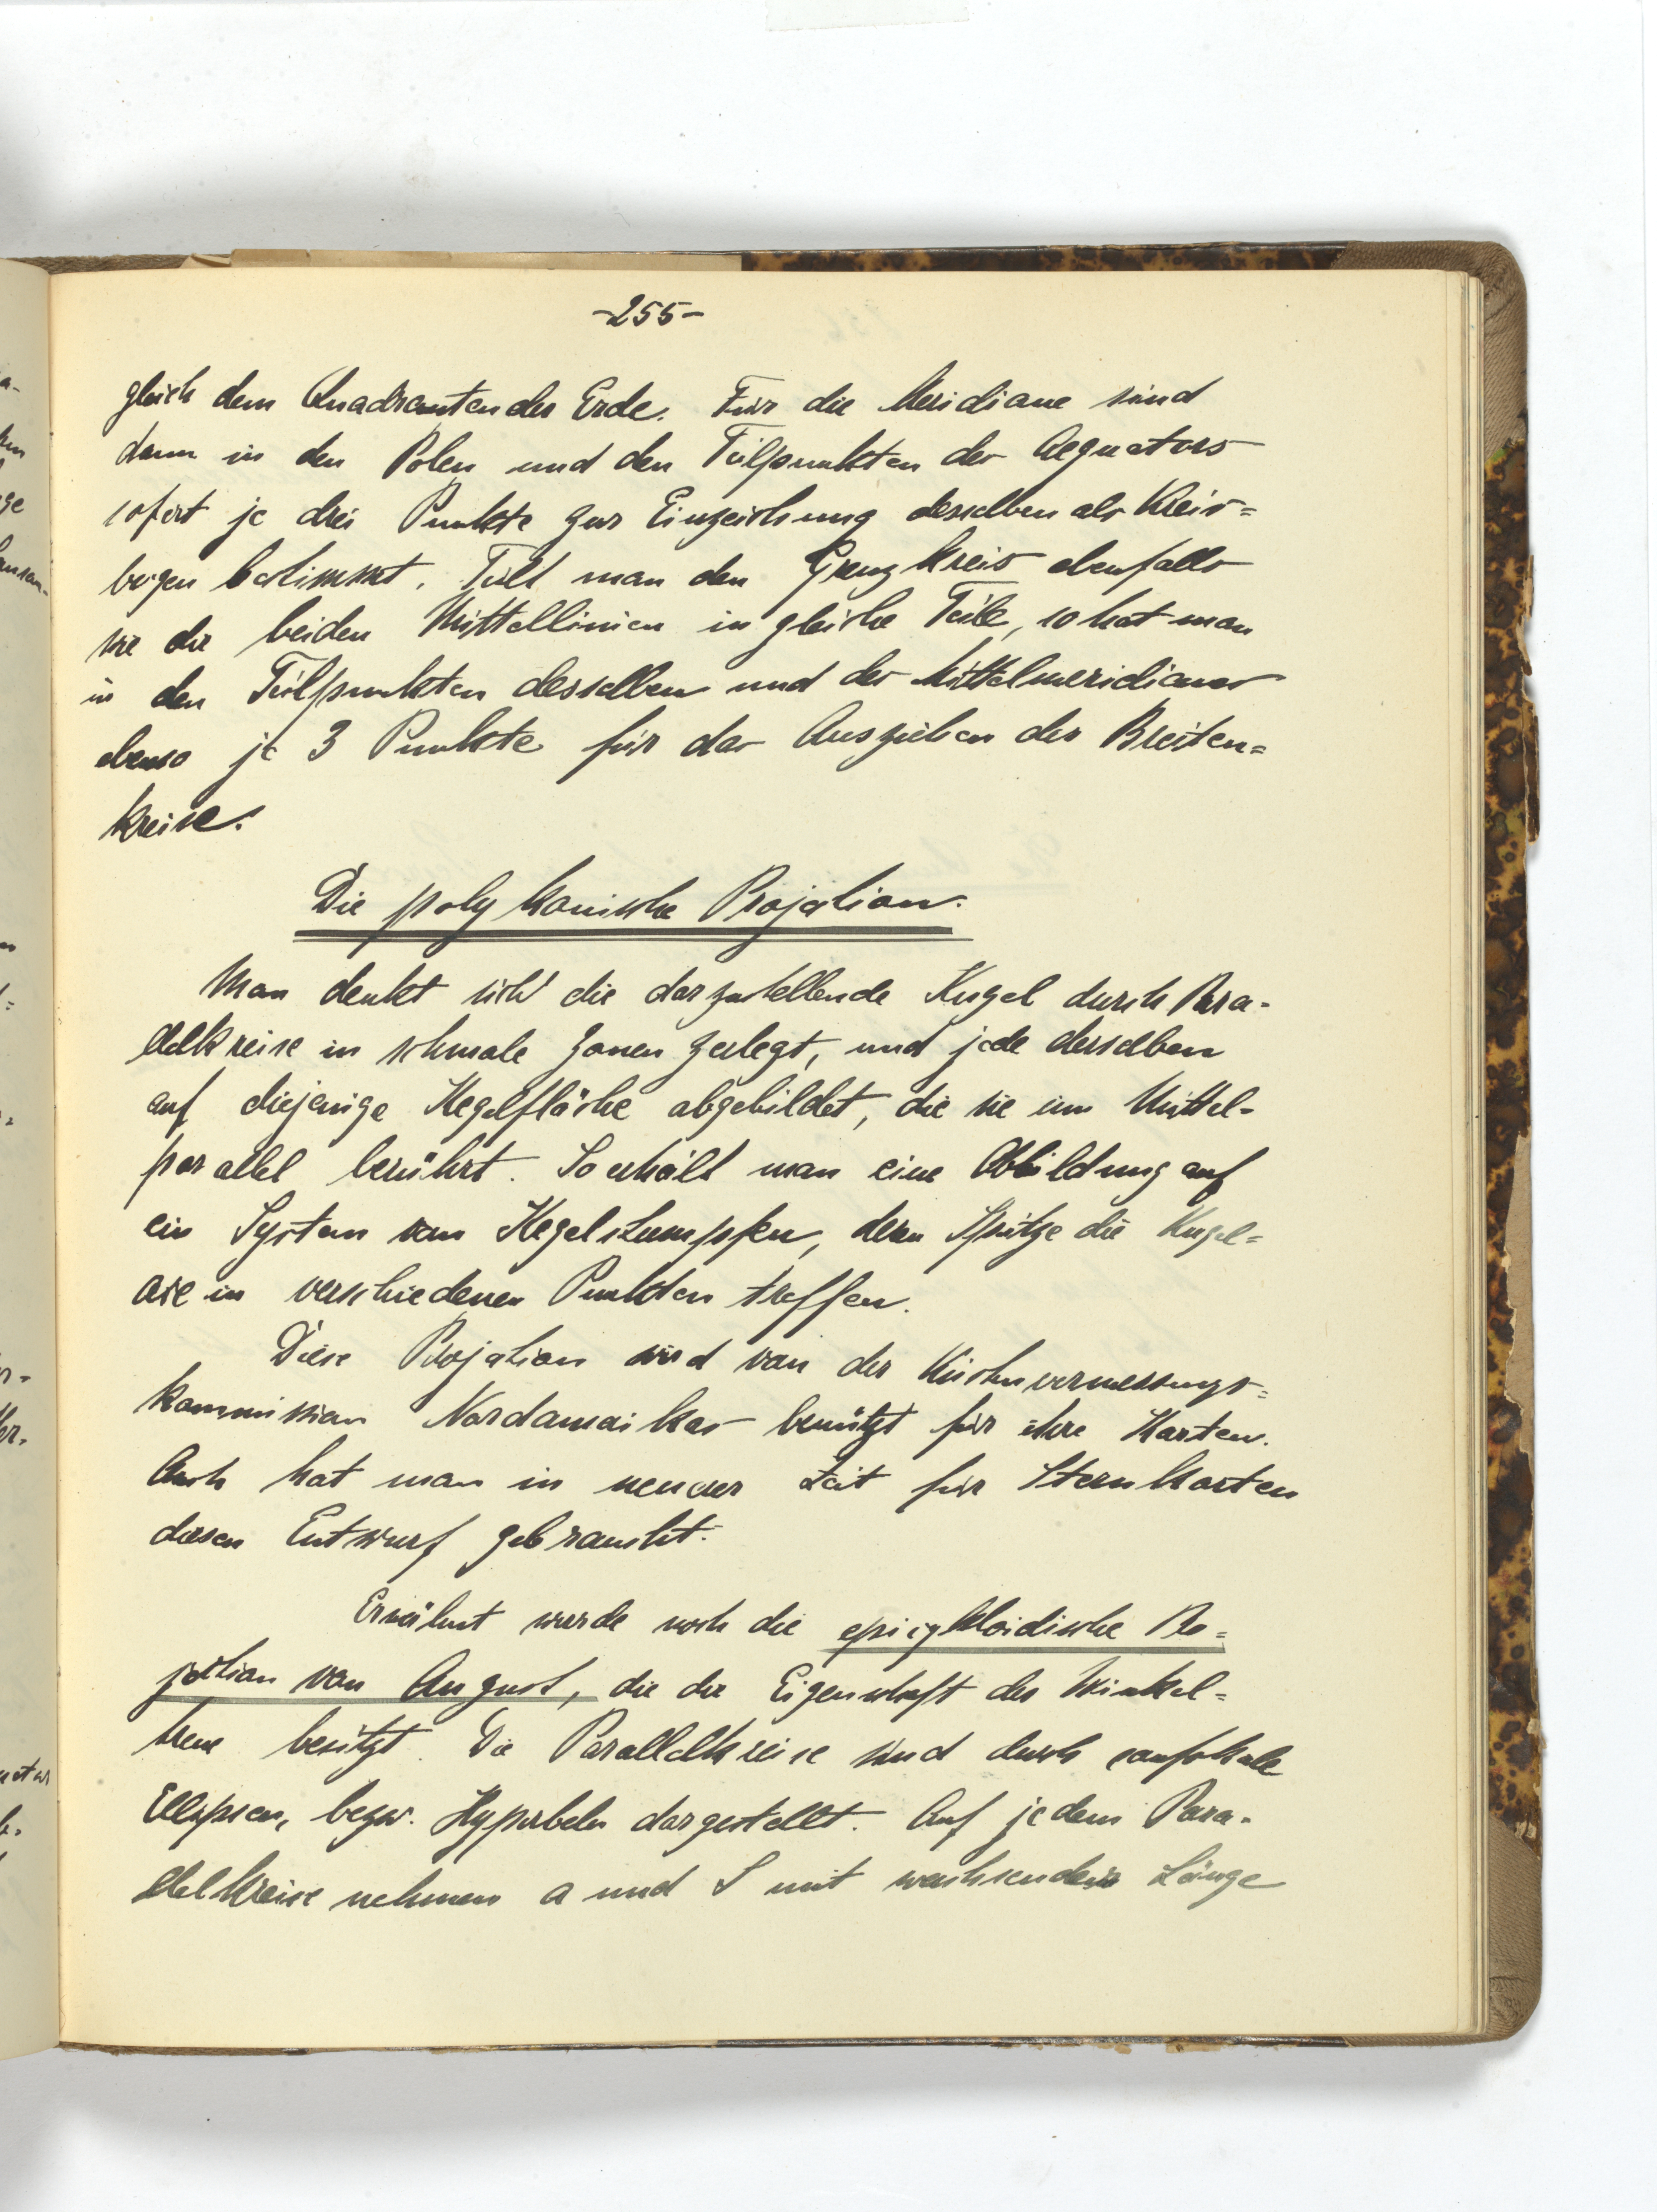 -255-
gleich dem Quadranten der Erde. Für die Meridiane sind
dann in den Polen und den Teilpunkten des Aequators
sofort je drei Punkte zur Einzeichnung derselben als Kreis=
bogen bestimmt. Teilt man den Grenzkreis ebenfalls
wie die beiden Mittellinien in gleiche Teile, so hat man
in den Teilpunkten desselben und des Mittelmeridianes
ebenso je 3 Punkte für das Ausziehen der Breiten=
kreise.
Die polykonische Projektion.
Man denkt sich die darzustellende Kugel durch Para-
llelkreise in schmale Zonen zerlegt, und jede derselben
auf diejenige Kegelfläche abgebildet, die sie im Mittel-
parallel berührt. So erhält man eine Abbildung auf
ein System von Kegelstumpfen, deren Spitze die Kugel=
axe in verschiedenen Punkten treffen.
Diese Projektion wird von der Küstenvermessungs=
kommission Nordamerikas benützt für ihre Karten.
Auch hat man in neuerer Zeit für Sternkarten
diesen Entwurf gebraucht.
Erwähnt werde noch die epicykloidische Pro=
jektion von August, die die Eigenschaft der Winkel=
treue besitzt. Die Parallelkreise sind durch confokale
Ellipsen, bezw. Hyperbeln dargestellt. Auf jedem Para-
llelkreise nehmen a und S mit wachsender Länge